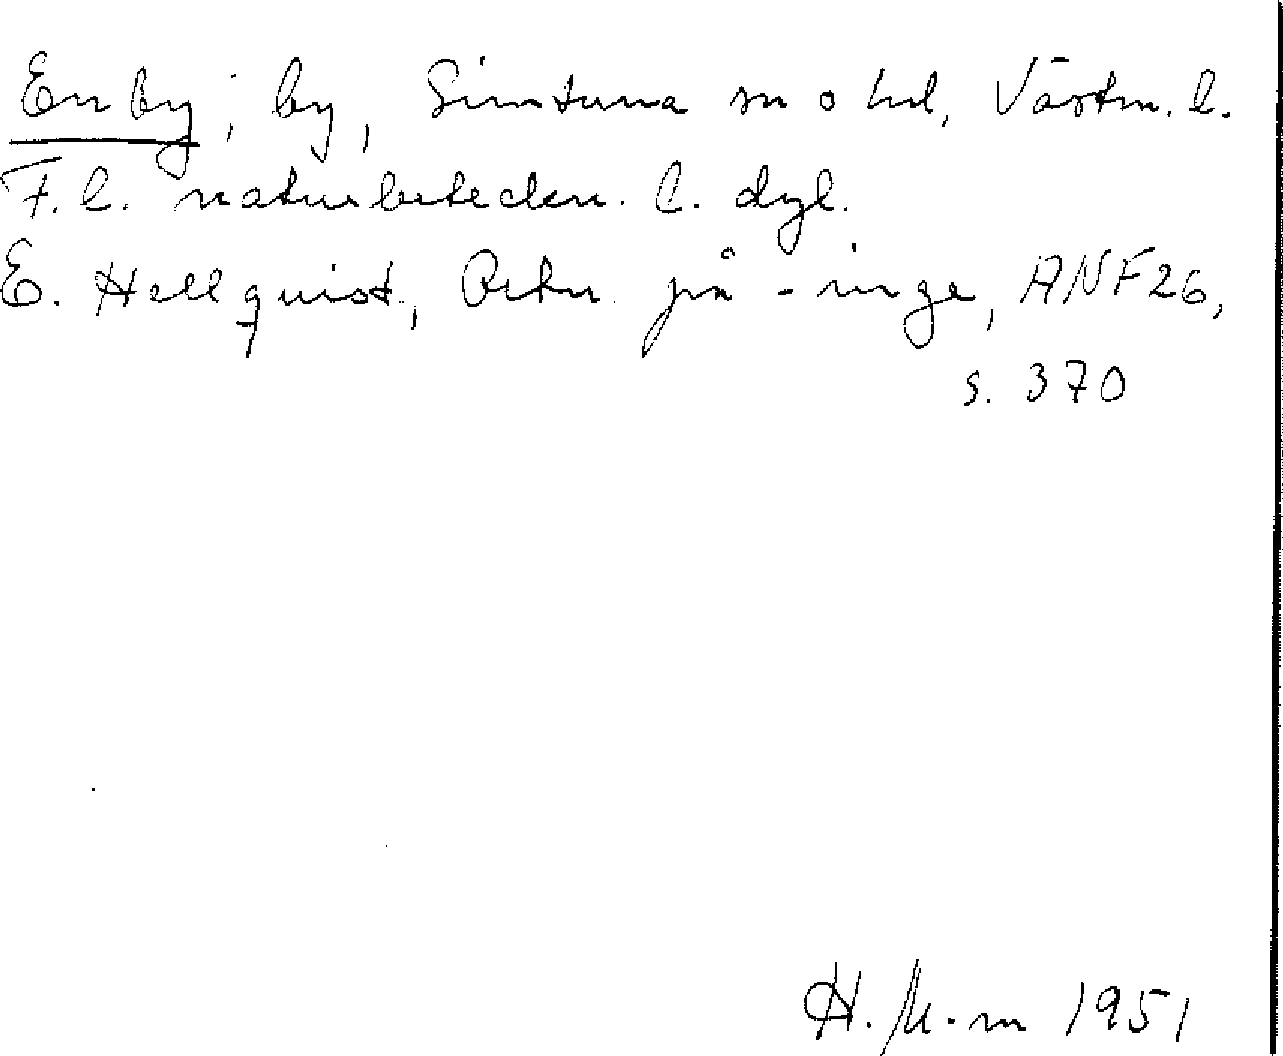 Enby, by, Simtuna sn o hd, Västm. l.
F.l. naturbeteckn. l. dyl.
E. Hellquist, Ortn. på -inge, ANF 26,
s. 370
H. M-m 1951